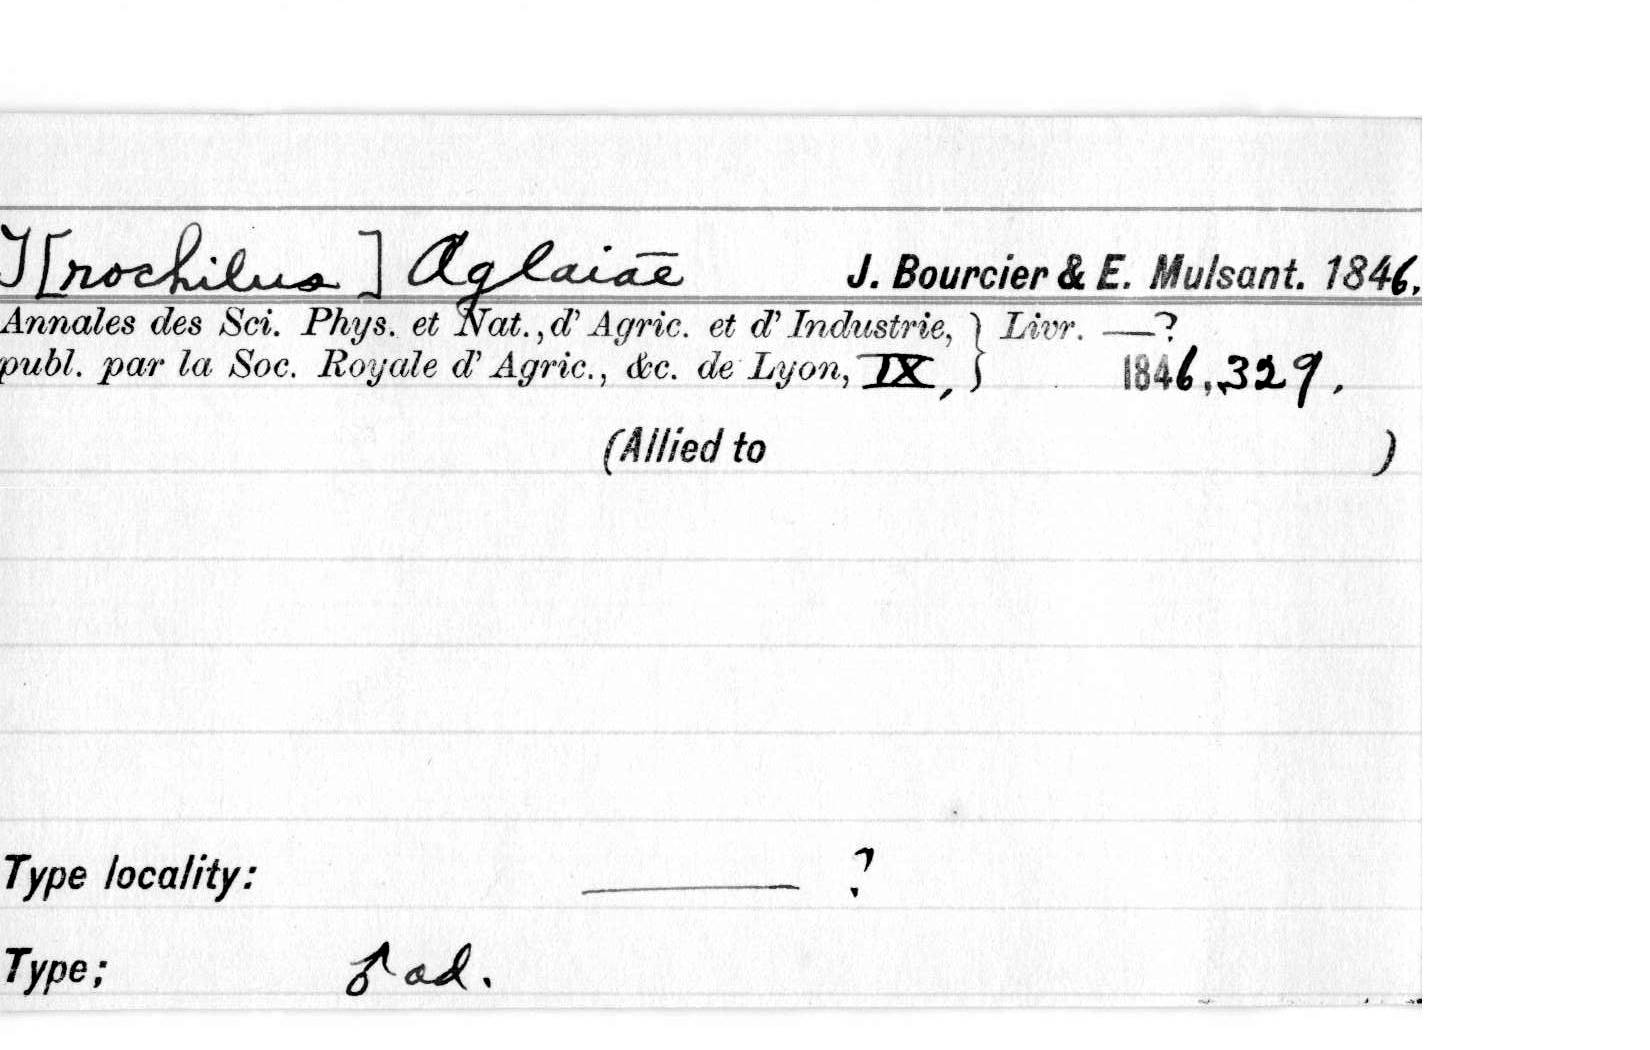 T[rochilus] Aglaiae J. Bourcier & E. Mulsant. 1846.
Annales des Sci. Phys. et Nat., d' Agric. et d' Industrie, } Livr. —?
publ. par la Soc. Royale d' Agric., &c. de Lyon, IX, } 1846, 329.
(Allied to )
Type locality: ——— ?
Type; ♂ ad.